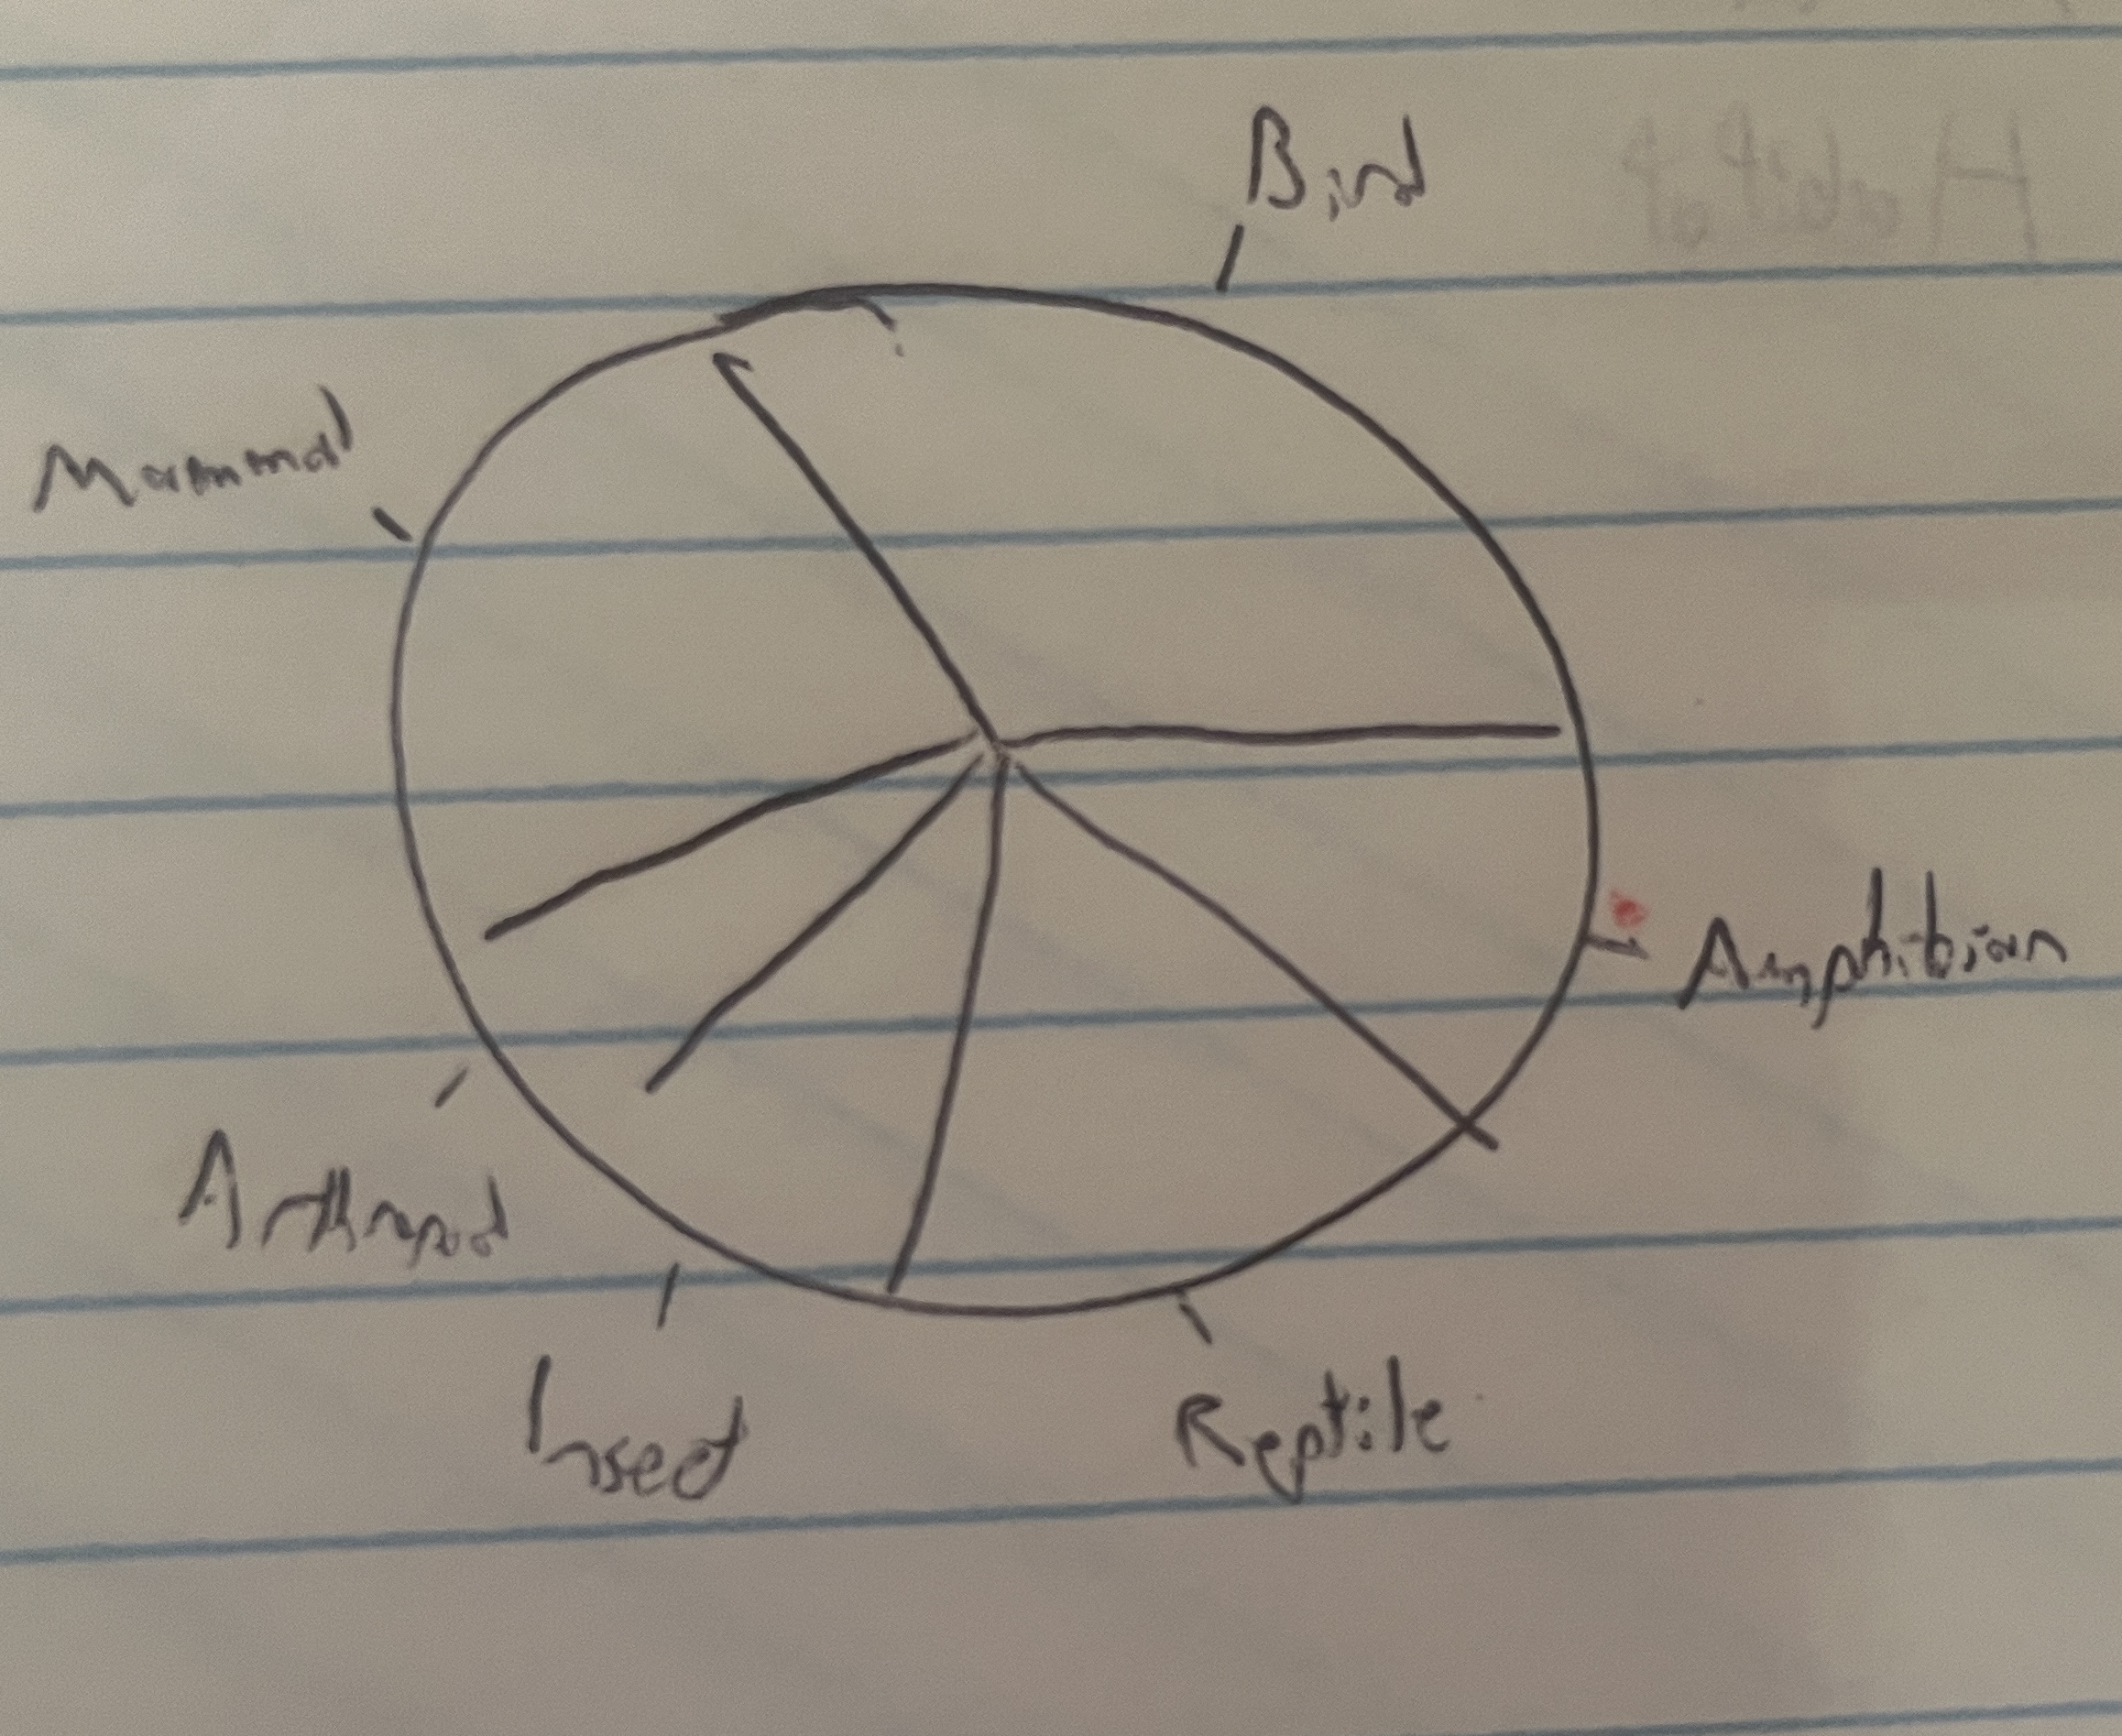 Bird
Mammal
Amphibian
Arthropod
Insect
Reptile
Habitat